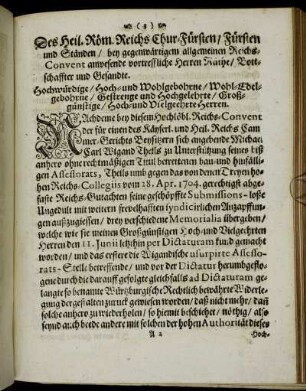 (3)
Des Heil. Röm. Reichs Chur-Fürsten/ Fürsten
und Ständen/ bey gegenwärtigem allgemeinen Reichs-
Convent anwesende vortreffliche Herren Räthe/ Bott-
schaffter und Gesandte.
Hochwürdige/ Hoch- und Wohlgebohrne/ Wohl-Edel-
gebohrne/ Gestrenge und Hochgelehrte/ Groß-
günstige/ Hoch- und Vielgeehrte Herren.
Nachdeme bey diesem Hochlöbl. Reichs-Convent
der für einen des Käyserl. und Heil. Reichs Cam-
mer-Gerichts Beysitzern sich angebende Michael
Carl Wigand Theils zu Unterstützung seines biß
anhero ohnrechtmässigen Titul betrettenen bau- und hinfälli-
gen Assessorats, Theils umb gegen das von denen Dreyen ho-
hen Reichs-Collegiis vom 28. Apr. 1704. gerechtigst abge-
faste Reichs-Gutachten seine geschöpffte Submissions-lose
Ungedult mit weitern frevelhafften syndicirlichen Anzapffun-
gen außzugiessen/ drey verschiedene Memorialia übergeben/
welche wie sie meinen Großgünstigen Hoch- und Vielgeehrten
Herren den 11. Junii letzthin per Dictaturam kund gemacht
worden/ und das erstere die Wigandische usurpirte Assesso-
rats-Stelle betreffende/ und vor der Dictatur herumbgeflo-
gene durch die darauff gefolgte gleichfalls ad Dictaturam ge-
langte so benamte Würtzburgische Rechtlich bewährte Widerle-
gung der gestalten zuruck gewiesen worden/ daß nicht mehr/ dan
solche anhero zu wiederholen/ so hiemit beschichet/ nöthig/ also
seynd auch beede andere mit solchen der hohen Authorität dieses
A 2 Hoch-